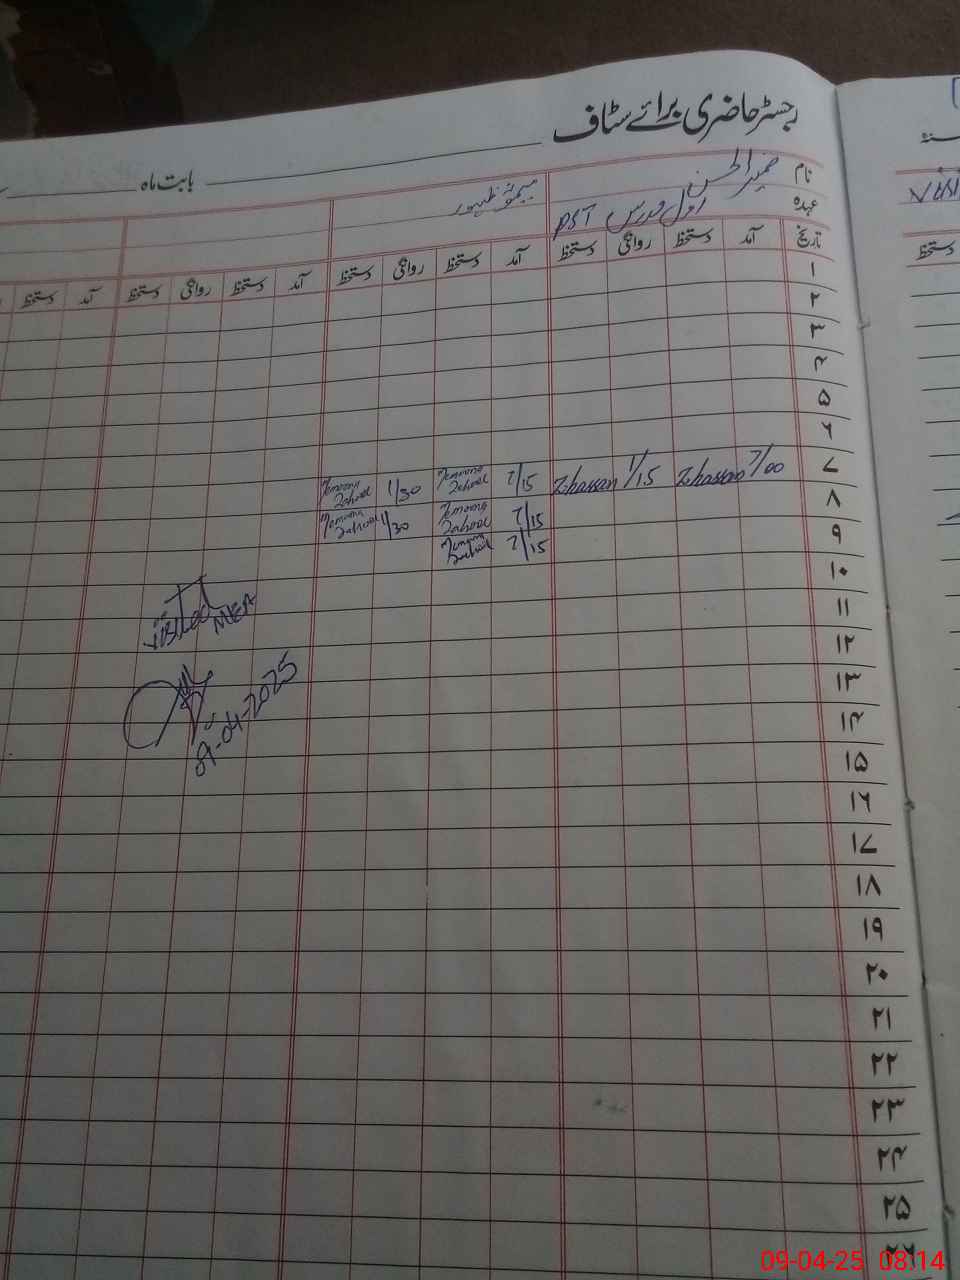 رجسٹر حاضری برائے سٹاف
بابت ماہ
نام ضمیر الحسن میمونہ ظہور
عہدہ اول مدرس PST
تاریخ آمد دستخط روانگی دستخط آمد دستخط روانگی دستخط آمد دستخط روانگی دستخط آمد دستخط
۱
۲
۳
۴
۵
۶
۷ 7/00 Z.hassan 1/15 Z.hassan 7/15 Memoona Zahoor 1/30 Memoona Zahoor
۸ 7/15 Memoona Zahoor 1/30 Memoona Zahoor
۹ 7/15 Memoona Zahoor
۱۰
۱۱
visited
MEA
۱۲
۱۳
09-04-2025
۱۴
۱۵
۱۶
۱۷
۱۸
۱۹
۲۰
۲۱
۲۲
۲۳
۲۴
۲۵
۲۶
دستخط
09-04-25 08:14